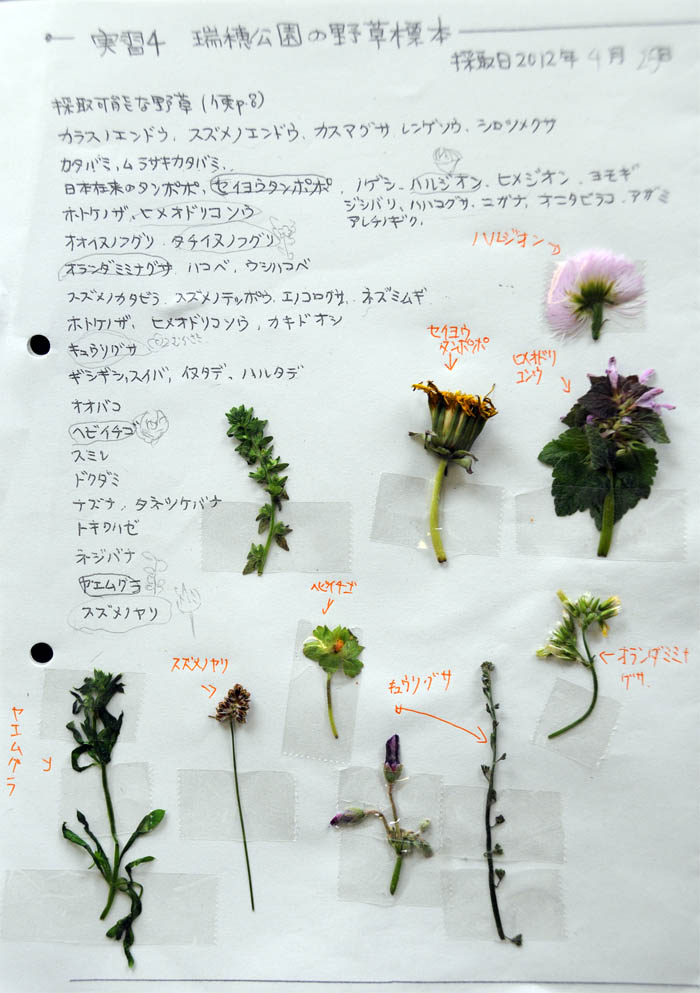 実習4 瑞穂公園の野草標本
採取日2012年4月25日
採取可能な野草(便p.8)
カラスノエンドウ、スズメノエンドウ、カスマグサ、レンゲソウ、シロツメクサ
カタバミ、ムラサキカタバミ、
日本在来のタンポポ、セイヨウタンポポ、ノゲシ、ハルジオン、ヒメジオン、ヨモギ
ジシバリ、ハハコグサ、ニガナ、オニタビラコ、アザミ
アレチノギク、
ホトケノザ、ヒメオドリコソウ
オオイヌノフグリ、タチイヌノフグリ
オランダミミナグサ、ハコベ、ウシハコベ
スズメノカタビラ、スズメノテッポウ、エノコログサ、ネズミムギ
ホトケノザ、ヒメオドリコソウ、カキドオシ
キュウリグサ
ギシギシ、スイバ、イヌタデ、ハルタデ
オオバコ
ヘビイチゴ
スミレ
ドクダミ
ナズナ、タネツケバナ
トキワハゼ
ネジバナ
ヤエムグラ
スズメノヤリ
ハルジオン
セイヨウ
タンポポ
ヒメオドリ
コソウ
ヘビイチゴ
オランダミミナ
グサ
スズメノヤリ
キュウリグサ
ヤエムグラ